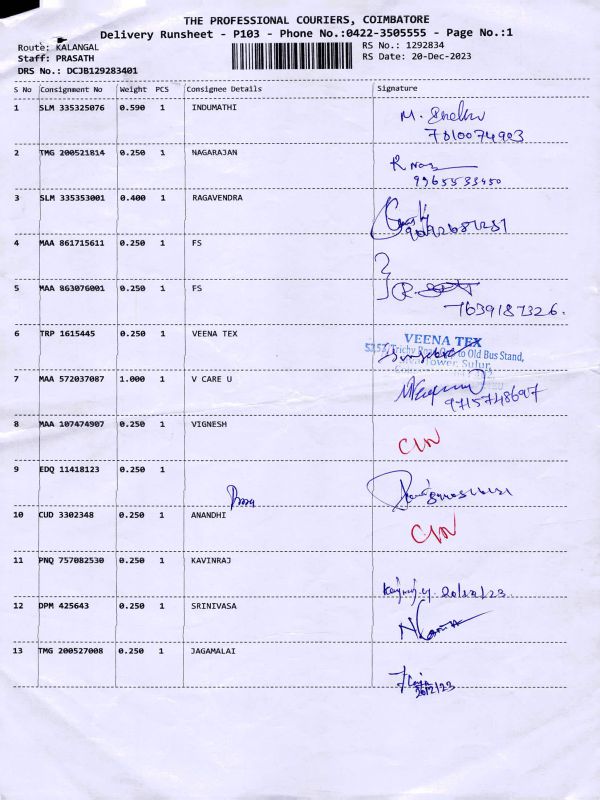 THE PROFESSIONAL COURIERS, COIMBATORE
Delivery Runsheet - P103 - Phone No.:0422-3505555 - Page No.:1
Route: KALANGAL
Staff: PRASATH
DRS No.: DCJB129283401
RS No.: 1292834
RS Date: 20-Dec-2023
S No Consignment No Weight PCS Consignee Details Signature
1 SLM 335325076 0.590 1 INDUMATHI
M.
7010074903
2 TMG 200521814 0.250 1 NAGARAJAN
9965533450
3 SLM 335353001 0.400 1 RAGAVENDRA
4 MAA 861715611 0.250 1 FS
5 MAA 863076001 0.250 1 FS
7639187326.
6 TRP 1615445 0.250 1 VEENA TEX
VEENA TEX
Trichy Road, to Old Bus Stand,
Tower, Sulur,
7 MAA 572037087 1.000 1 V CARE U
9715748697
8 MAA 107474907 0.250 1 VIGNESH
9 EDQ 11418123 0.250 1
10 CUD 3302348 0.250 1 ANANDHI
11 PNQ 757082530 0.250 1 KAVINRAJ
20/12/23
12 DPM 425643 0.250 1 SRINIVASA
13 TMG 200527008 0.250 1 JAGAMALAI